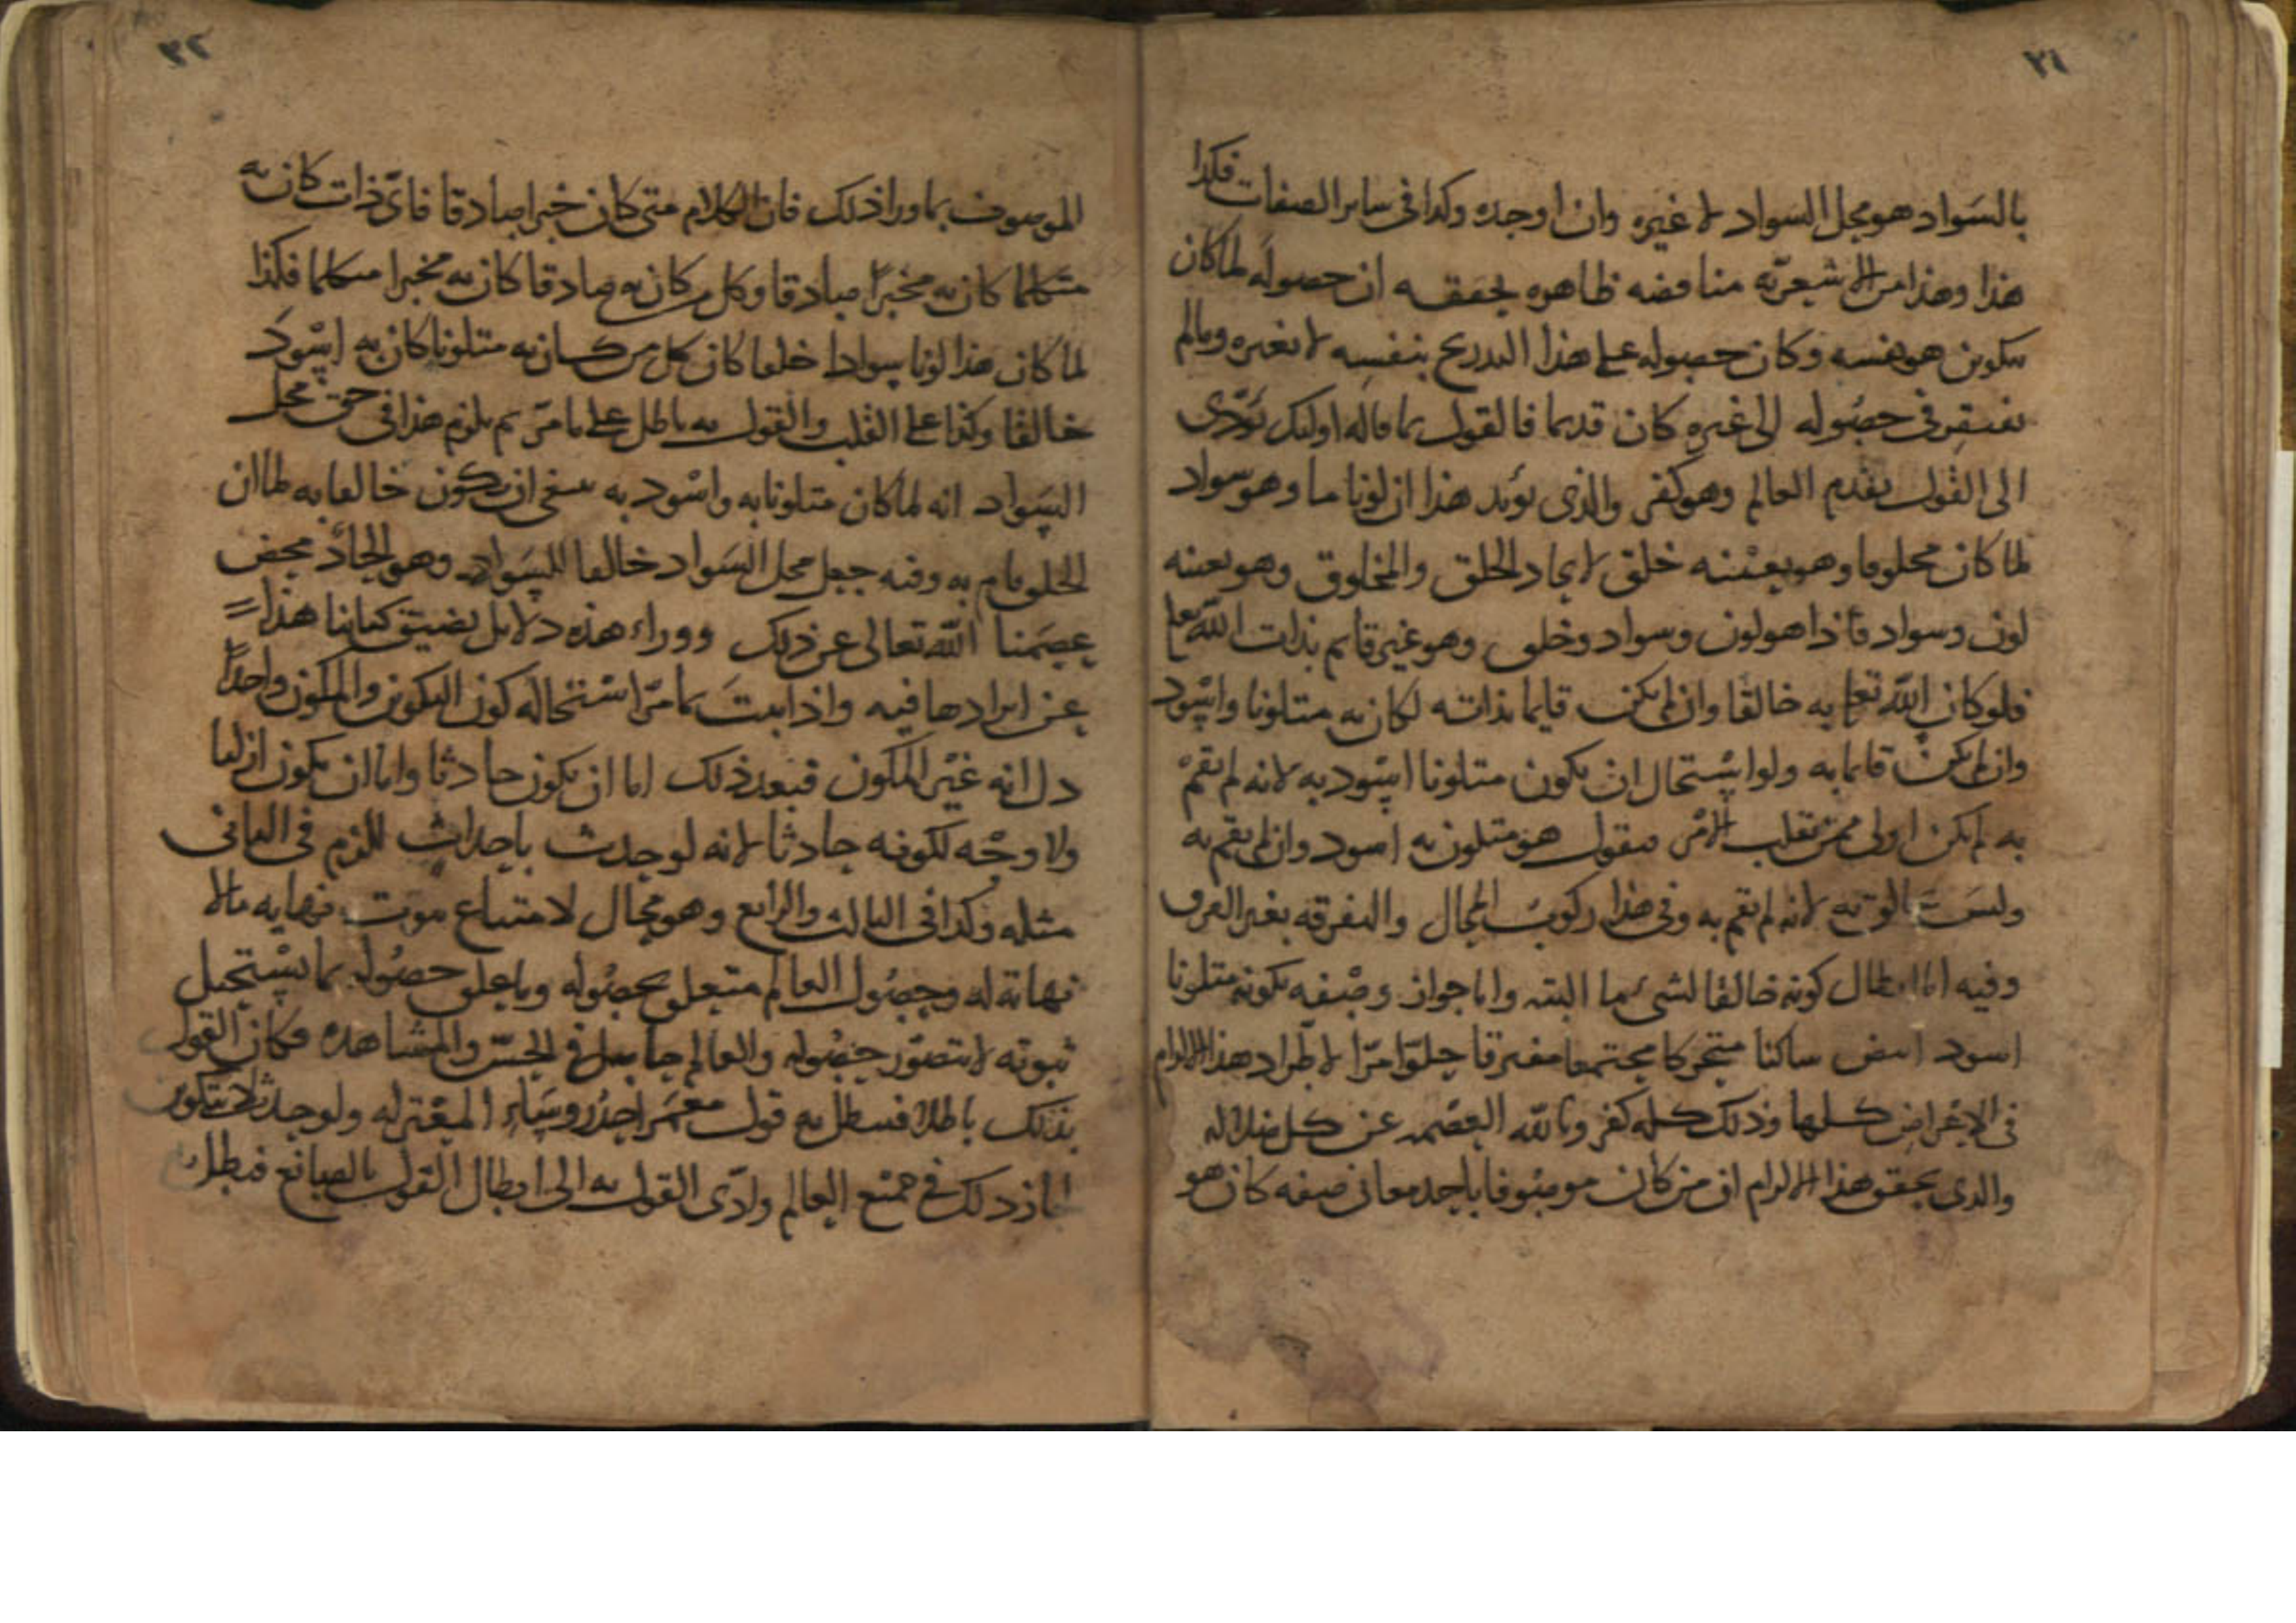 ٣١
بالسواد هو محل السواد لا غيره وان اوجده وكذا فى ساير الصفات فكذا
هذا وهذا من الاشعريه مناقضه ظاهره يحققه ان حصوله لما كان
بتكوين هو نفسه وكان حصوله على هذا التدريج بنفسه لا بغيره وما لم
يفتقر فى حصوله الى غيره كان قديما فالقول بما قاله اوليك يؤدى
الى القول بقدم العالم وهو كفر والذى يؤيد هذا ان لونا ما وهو سواد
لما كان مخلوقا وهو بعينه خلق لاتحاد الخلق والمخلوق وهو بعينه
لون وسواد فاذا هو لون وسواد وخلق وهو غير قايم بذات الله تعا
فلو كان الله تعا به خالقا وان لم يكن قايما بذاته لكان به متلونا واسود
وان لم يكن قايما به ولو استحال ان يكون متلونا اسود به لانه لم يقم
به لم يكن اولى ممن يقلب الامر فيقول هو متلون به اسود وان لم يقم به
وليس خالق به لانه لم يقم به وفى هذا ركوب المحال والتفرقه بغير الفرق
وفيه اما ابطال كونه خالقا لشىء ما البته واما جواز وصفه بكونه متلونا
اسود ابيض ساكنا متحركا مجتمعا مفترقا حلوا مرا لاطراد هذا الالزام
فى الاعراض كلها وذلك كله كفر وبالله العصمه عن كل ضلاله
والذى يحقق هذا الالزام ان من كان موصوفا باحد معانى صفه كان هو
٣٢
الموصوف بما ورا ذلك فان الكلام متى كان خبرا صادقا فاى ذات كان به
متكلما كان به مخبرا صادقا وكل من كان به صادقا كان به مخبرا متكلما فكذا
لما كان هذا لونا سوادا خلقا كان كل من كان به متلونا كان به اسود
خالقا وكذا على القلب والقول به باطل على ما مر ثم يلزم هذا فى حق محل
السواد انه لما كان متلونا به واسود به ينبغى ان يكون خالقا به لما ان
الخلق قام به وفيه جعل محل السواد خالقا للسواد وهو الحاد محض
عصمنا الله تعالى عن ذلك ووراء هذه دلايل يضيق كتابنا هذا
عن ايرادها فيه واذا ثبت بما مر استحاله كون التكوين والمكون واحدا
دل انه غير المكون فبعد ذلك اما ان يكون حادثا واما ان يكون ازليا
ولا وجه لكونه حادثا لانه لو حدث باحداث للزم فى الثانى
مثله وكذا فى الثالث والرابع وهو محال لامتناع ثبوت نهايه ما لا
نهاية له وحصول العالم متعلق بحصوله وما علق حصوله بما يستحيل
ثبوته لا يتصور حصوله والعالم حاصل فى الحس والمشاهده فكان القول
بذلك باطلا فبطل به قول معمر احد روساء المعتزله ولو حدث لا بتكوين
لجاز ذلك فى جميع العالم وادى القول به الى ابطال القول بالصانع فبطل